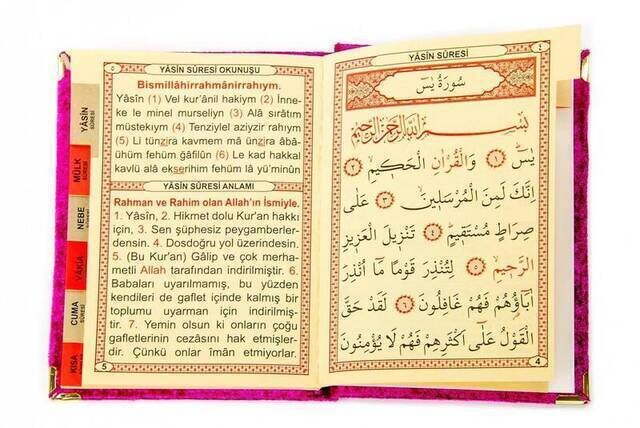 ٤
YÂSİN SÛRESİ
سُورَةُ يٰسٓ
بِسْمِ اللّٰهِ الرَّحْمٰنِ الرَّحِيمِ
يٰسٓ ﴿١﴾ وَالْقُرْاٰنِ الْحَكِيمِ ﴿٢﴾
اِنَّكَ لَمِنَ الْمُرْسَلِينَ ﴿٣﴾ عَلٰى
صِرَاطٍ مُسْتَقِيمٍ ﴿٤﴾ تَنْزِيلَ الْعَزِيزِ
الرَّحِيمِ ﴿٥﴾ لِتُنْذِرَ قَوْمًا مَٓا اُنْذِرَ
اٰبَٓاؤُهُمْ فَهُمْ غَافِلُونَ ﴿٦﴾ لَقَدْ حَقَّ
الْقَوْلُ عَلٰٓى اَكْثَرِهِمْ فَهُمْ لَا يُؤْمِنُونَ
4
٥
YÂSİN SÛRESİ OKUNUŞU
Bismillâhirrahmânirrahıym.
Yâsîn (1) Vel kur'ânil hakiym (2) İnne-
ke le minel murseliyn (3) Alâ sırâtım
müstekıym (4) Tenziylel aziyzir rahiym
(5) Li tünzira kavmem mâ ünzira âbâ-
ühüm fehüm ğâfilûn (6) Le kad hakkal
kavlü alâ ekserihim fehüm lâ yü'minûn
YÂSİN SÛRESİ ANLAMI
Rahman ve Rahim olan Allah'ın İsmiyle.
1. Yâsin, 2. Hikmet dolu Kur'an hakkı
için, 3. Sen şüphesiz peygamberler-
densin. 4. Dosdoğru yol üzerindesin.
5. (Bu Kur'an) Gâlip ve çok merha-
metli Allah tarafından indirilmiştir. 6.
Babaları uyarılmamış, bu yüzden
kendileri de gaflet içinde kalmış bir
toplumu uyarman için indirilmiş-
tir. 7. Yemin olsun ki onların çoğu
gafletlerinin cezâsını hak etmişler-
dir. Çünkü onlar îmân etmiyorlar.
5
YÂSİN
SÛRESİ
MÜLK
SÛRESİ
NEBE
SÛRESİ
VAKIA
SÛRESİ
CUMA
SÛRESİ
KISA